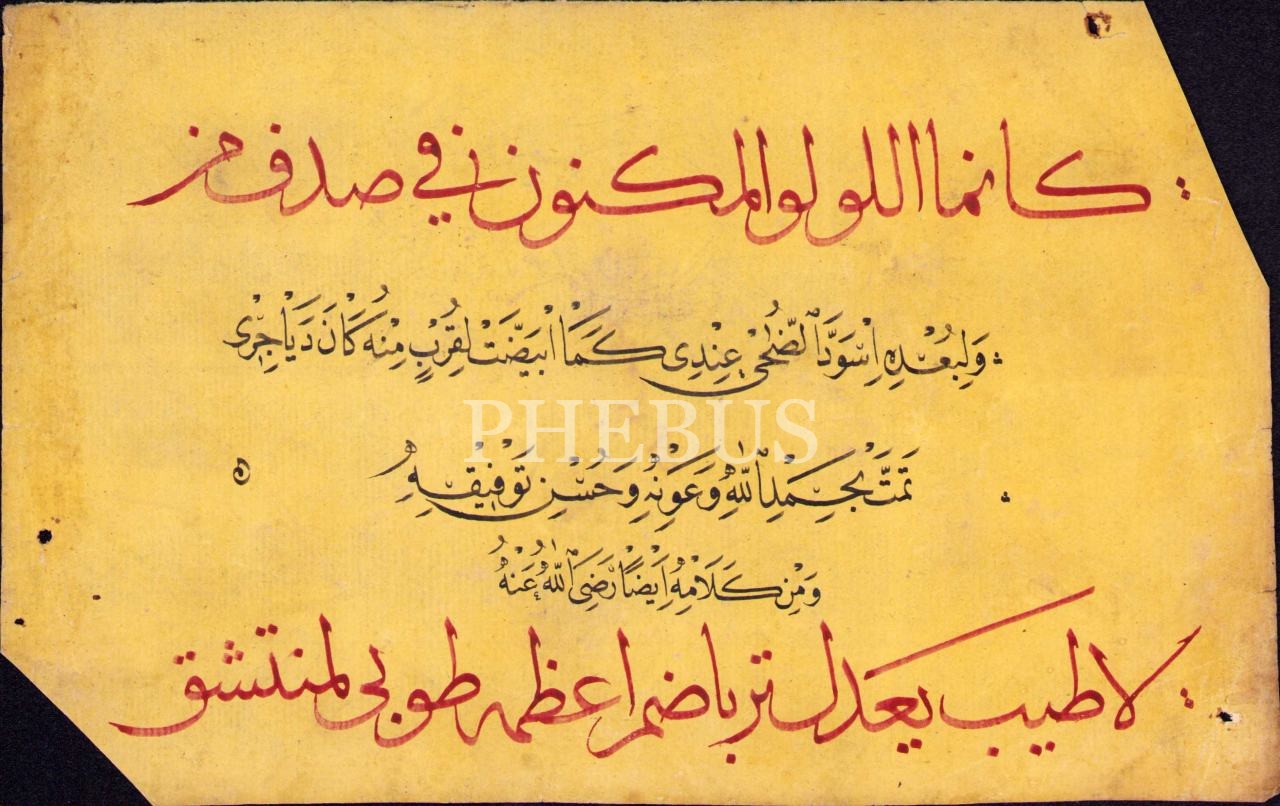 كانما اللولو المكنون في صدف من
وَلِبُعْدِهِ اِسْوَدَّ الضُّحٰى عِنْدِى كَمَا ابْيَضَّتْ لِقُرْبٍ مِنْهُ كَانَ دَيَاجِرِى
PHEBUS
تَمَّتْ بِحَمْدِ اللّٰهِ وَعَوْنِهِ وَحُسْنِ تَوْفِيْقِهِ
وَمِنْ كَلَامِهِ اَيْضًا رَضِىَ اللّٰهُ عَنْهُ
لا طيب يعدل تربا ضم اعظمه طوبى لمنتشق